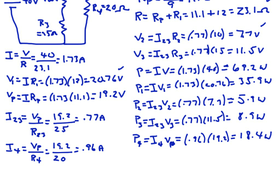 R₃
=15Ω
R₄=20Ω
I = V/R = 40/23.1 = 1.73A
V₁ = IR₁ = (1.73)(12) = 20.76V
Vₚ = IRₚ = (1.73)(11.1) = 19.2V
I₂₃ = Vₚ/R₂₃ = 19.2/25 = .77A
I₄ = Vₚ/R₄ = 19.2/20 = .96A
R = Rₚ + R₁ = 11.1 + 12 = 23.1Ω
V₂ = I₂₃ R₂ = (.77)(10) = 7.7V
V₃ = I₂₃ R₃ = (.77)(15) = 11.5V
P = IV = (1.73)(40) = 69.2W
P₁ = IV₁ = (1.73)(20.76) = 35.9W
P₂ = I₂₃ V₂ = (.77)(7.7) = 5.9W
P₃ = I₂₃ V₃ = (.77)(11.5) = 8.9W
P₄ = I₄ Vₚ = (.96)(19.2) = 18.4W